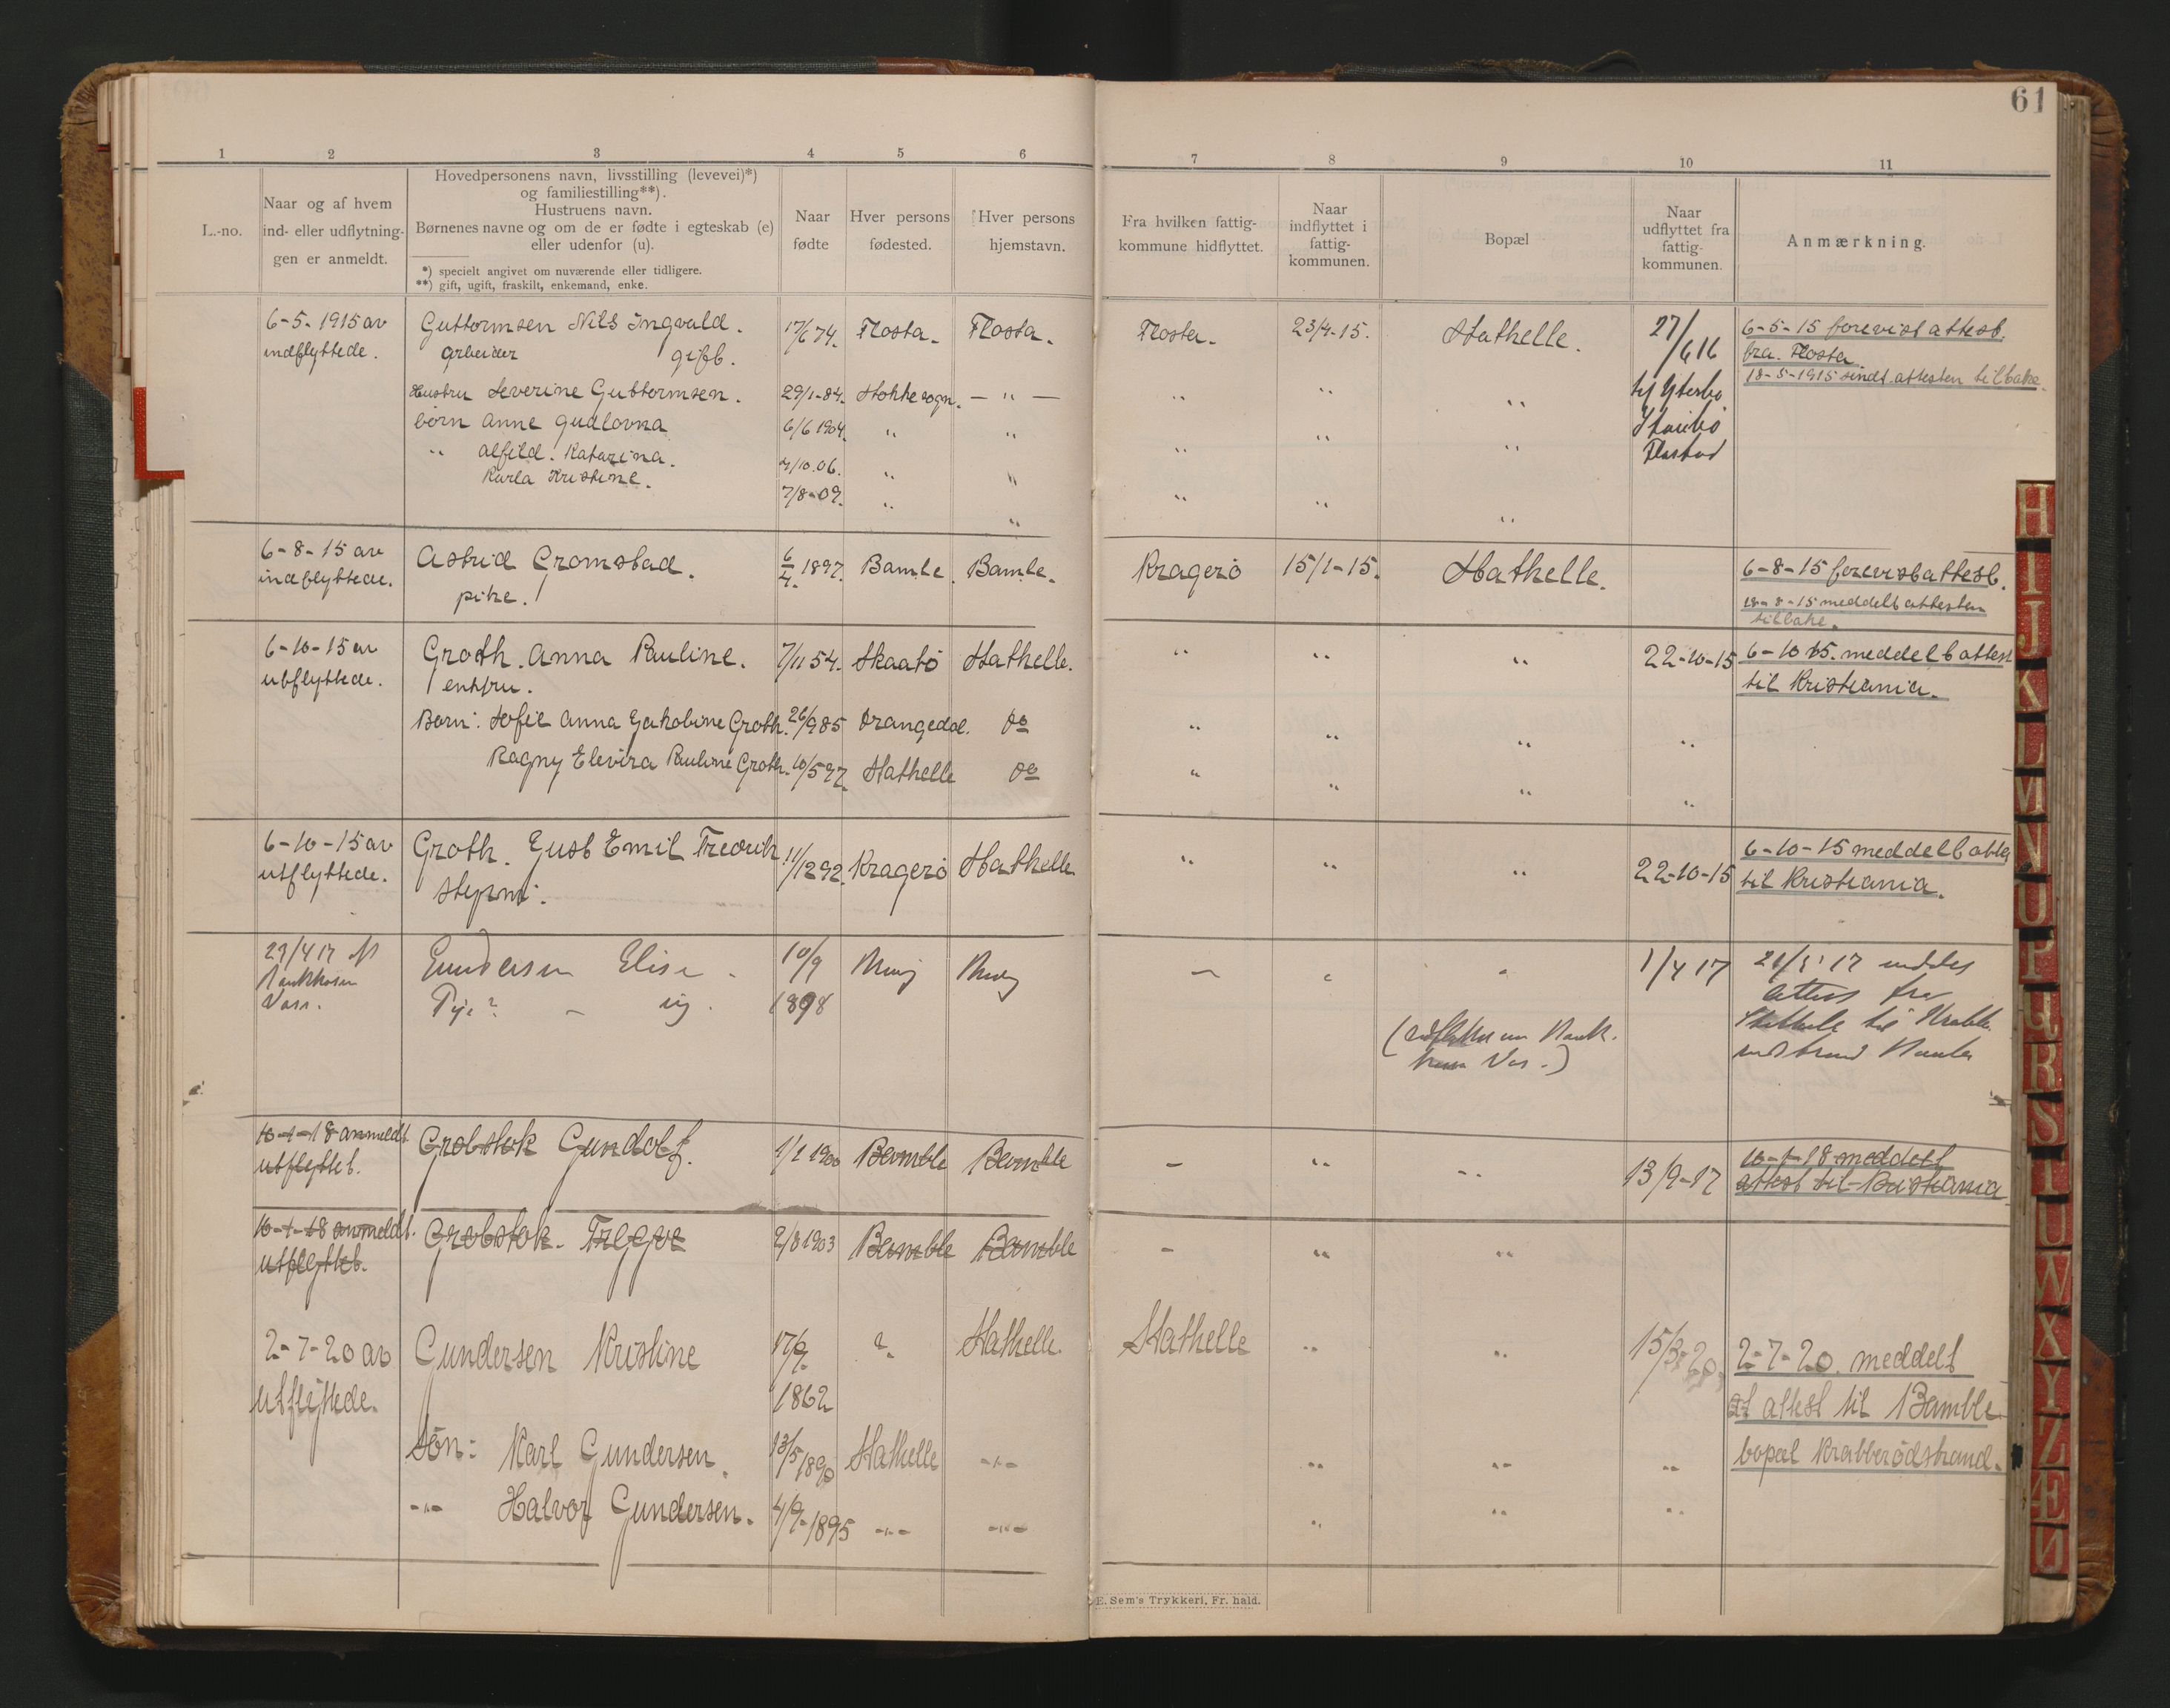 61
1 2 3 4 5 6 7 8 9 10 11
L.-no.
Naar og af hvem
ind- eller udflytning-
gen er anmeldt.
Hovedpersonens navn, livsstilling (levevei)*)
og familiestilling**).
Hustruens navn.
Børnenes navne og om de er fødte i egteskab (e)
eller udenfor (u).
*) specielt angivet om nuværende eller tidligere.
**) gift, ugift, fraskilt, enkemand, enke.
Naar
fødte
Hver persons
fødested.
Hver persons
hjemstavn.
Fra hvilken fattig-
kommune hidflyttet.
Naar
indflyttet i
fattig-
kommunen.
Bopæl
Naar
udflyttet fra
fattig-
kommunen.
Anmærkning.
6-5-1915 av Guttormsen Nils Ingvald. 17/6 74. Flosta. Flosta. Flosta. 23/4-15. Stathelle. 27/6 16 6-5-15 forevist attest.
indflyttede. arbeider gift. fra. Flosta
18-5-1915 sendt attesten tilbake.
Hustru Severine Guttormsen. 29/1-84. Stokke sogn. - " - " " " til
børn Anne Gudlovna 6/6 1904. " " " "
" Alfild. Katarina. 4/10.06. " " " "
Karla Kristine. 7/8-09. " " " " "
6-8-15 av Astrid Gromstad. 6/4. 1897. Bamle. Bamle. Kragerö 15/1-15. Stathelle. 6-8-15 forevist attest.
indflyttede. pike. 18-8-15 meddelt attesten
tilbake.
6-10-15 av Groth. Anna Pauline. 7/11 54. Skaatö Stathelle. " " " 22-10-15 6-10 15. meddelt attest
utflyttede. enkfru. til Kristiania.
Barn: Sofie Anna Jakobine Groth. 26/9 85 Drangedal. do " " " "
Ragny Elevira Pauline Groth. 10/5 97. Stathelle do " " " "
6-10-15 av Groth. Gust Emil Fredrik 11/12 92. Kragerö Stathelle " " " 22-10-15 6-10-15 meddelt attes
utflyttede. til Kristiania.
23/4 17 Gundersen Elise - 10/9 - " " 1/4 17
Vasr. - ug. 1898 attest fra
10-1-18 anmeldt Grobstok Gundolf. 1/1 1900 Bamble Bamble - " " 13/9-17 10-1-18 meddelt
utflyttet. attest til Kristiania
10-1-18 anmeldt. Grobstok. Trygve 2/8 1903 Bamble Bamble - " "
utflyttet.
2-7-20 av Gundersen Kristine 17/9. ? Stathelle. Stathelle " " 15/3-20. 2-7-20. meddelt
utflyttede. 1862 at attest til Bamble
Sön: Karl Gundersen. 13/5 1890 Stathelle -"- " " " bopæl Krabberödstrand.
-"- Halvor Gundersen. 4/9-1895 -"- -"- " " "
E. Sem's Trykkeri, Fr. hald.
H
I
J
K
L
M
N
O
P
Q
R
S
T
U
W
X
Y
Z
Æ
Ø